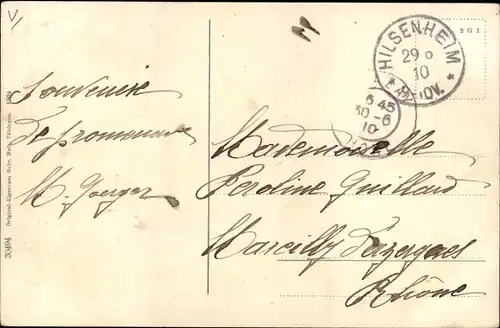 HILSENHEIM
29 6
10
2 G 1
6 45
30-6
10
Souvenir
de promenade
M. Joerger
Mademoiselle
Guillard
Marcilly d'Azergues
Rhône
30494
Original-Eigentum Gebr. Metz, Tübingen.